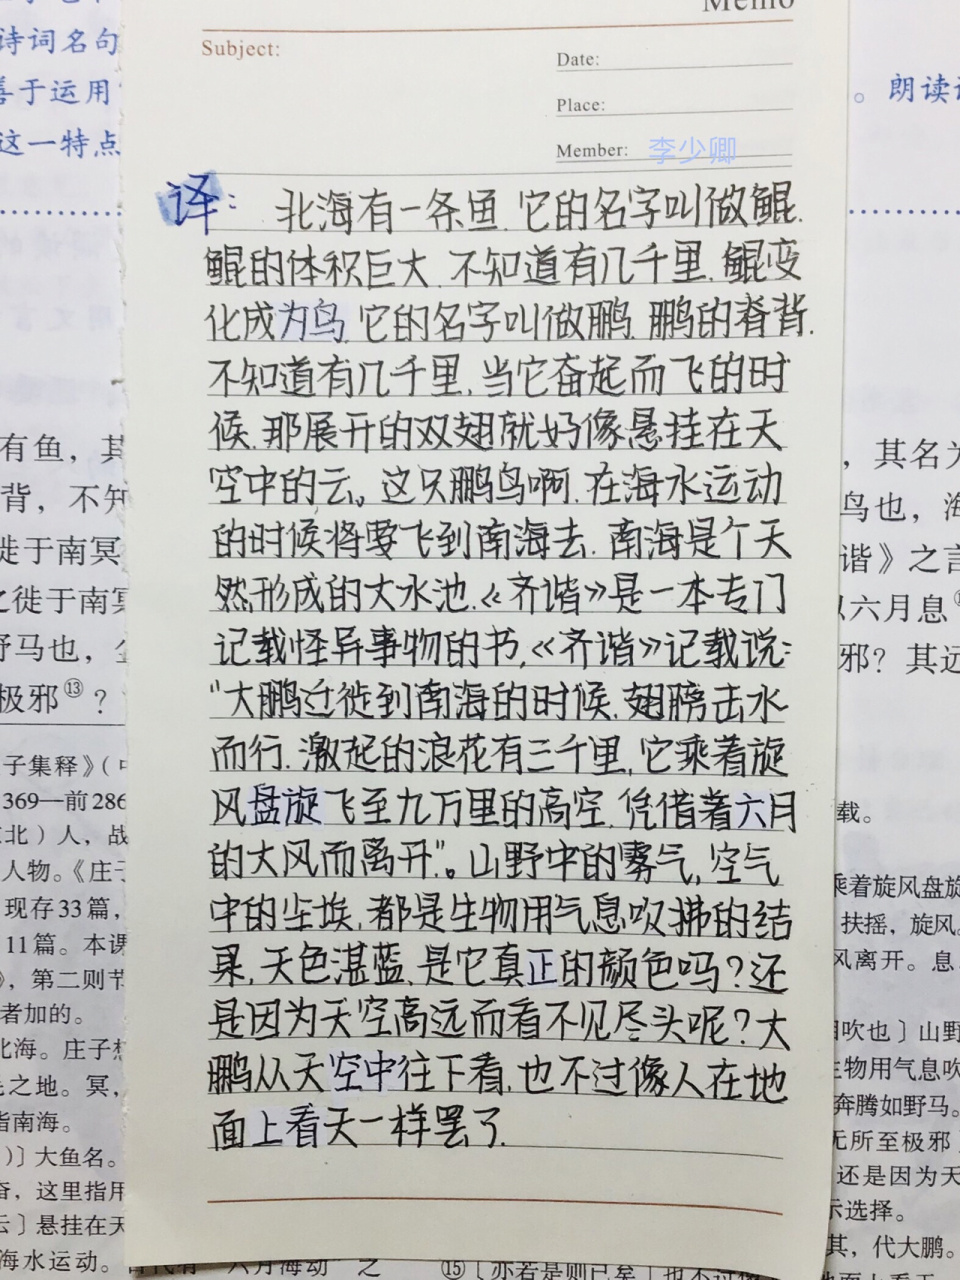 诗词名句
善于运用
这一特点
。朗读
Memo
Subject:
Date:
Place:
Member: 李少卿
译: 北海有一条鱼.它的名字叫做鲲.
鲲的体积巨大.不知道有几千里.鲲变
化成为鸟.它的名字叫做鹏.鹏的脊背.
不知道有几千里.当它奋起而飞的时
候.那展开的双翅就好像悬挂在天
空中的云。这只鹏鸟啊.在海水运动
的时候将要飞到南海去.南海是个天
然形成的大水池.《齐谐》是一本专门
记载怪异事物的书,《齐谐》记载说:
“大鹏迁徙到南海的时候.翅膀击水
而行.激起的浪花有三千里,它乘着旋
风盘旋飞至九万里的高空.凭借着六月
的大风而离开”。山野中的雾气,空气
中的尘埃.都是生物用气息吹拂的结
果.天色湛蓝.是它真正的颜色吗?还
是因为天空高远而看不见尽头呢?大
鹏从天空中往下看.也不过像人在地
面上看天一样罢了.
有鱼，其
背，不知
徙于南冥
之徙于南冥
野马也，
极邪⑬？
子集释》（
369—前286
北）人，战
人物。《庄子
现存33篇，
11篇。本课
》，第二则节
者加的。
北海。庄子想
之地。冥，
指南海。
）〕大鱼名。
奋，这里指用
云〕悬挂在天
海水运动。古代有“六月海动”之
，其名为
鸟也，海
谐》之言
以六月息
邪？其远
载。
乘着旋风盘旋
扶摇，旋风。
风离开。息，
相吹也〕山野
生物用气息吹
奔腾如野马。
无所至极邪
还是因为天
示选择。
其，代大鹏。
⑮〔亦若是则已矣〕也不过像